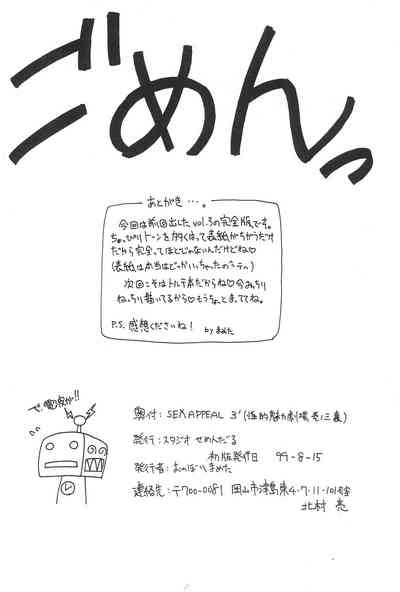 ごめんっ
あとがき…。
今回は前回出した vol.3の完全版です。
ちょっぴりトーンを多くはって表紙がちがうだけ
だから完全ってほどじゃないんだけどね♡
(表紙は本当はどっかいっちゃったの
次回こそはトルテ本だからね♡今みっちり
ねっちり描いてるから♡もうちょとまっててね。
P.S. 感想くださいね! by まめた
で、電波が!!
奥付:SEX APPEAL 3'(性的魅力劇場
発行:スタジオ せめんだる
初版発行日 99-8-15
発行者:おのぼりまめた
連絡先:〒700-0081 岡山市津島東4-7-11-101号
北村 亮